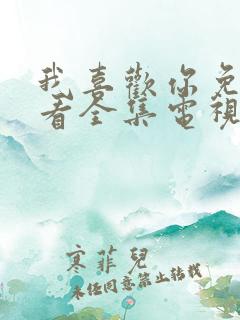 我喜歡你免
看全集電視
寒菲兒
未經同意禁止轉載